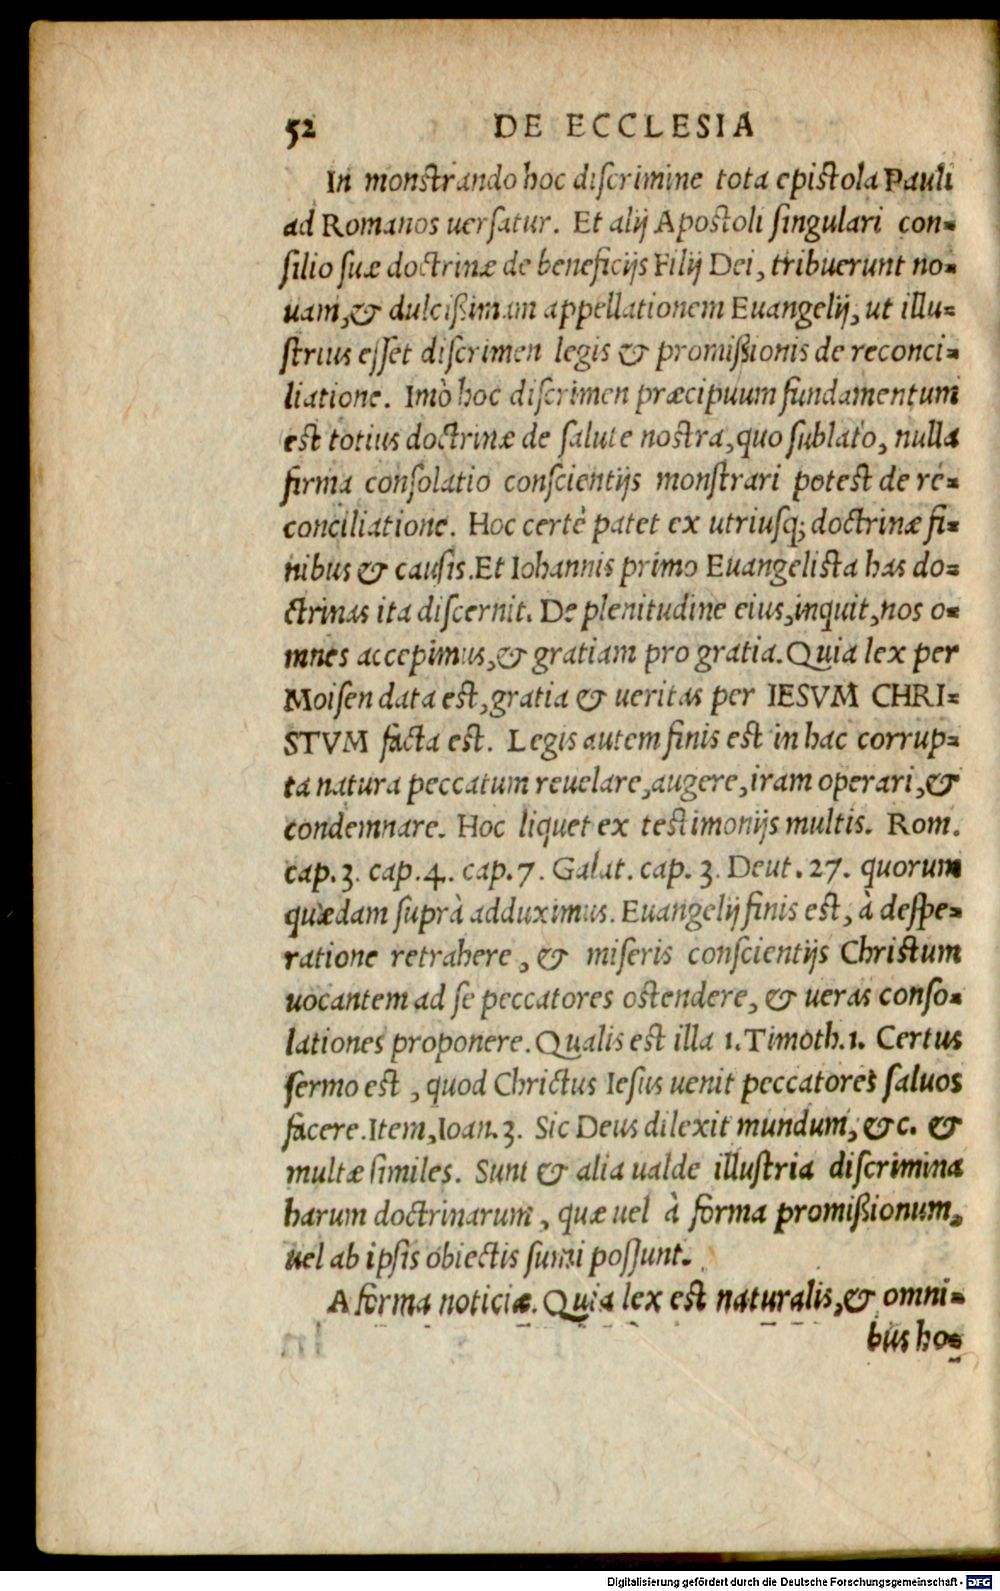 52 DE ECCLESIA
In monſtrando hoc diſcrimine tota epiſtola Pauli
ad Romanos uerſatur. Et alij Apoſtoli ſingulari con-
ſilio ſuæ doctrinæ de beneficijs Filij Dei, tribuerunt no-
uam, & dulcißimam appellationem Euangelij, ut illu-
ſtrius eſſet diſcrimen legis & promißionis de reconci-
liatione. Imò hoc diſcrimen præcipuum fundamentum
eſt totius doctrinæ de ſalute noſtra, quo ſublato, nulla
firma conſolatio conſcientijs monſtrari poteſt de re-
conciliatione. Hoc certè patet ex utriuſq; doctrinæ fi-
nibus & cauſis. Et Iohannis primo Euangeliſta has do-
ctrinas ita diſcernit. De plenitudine eius, inquit, nos o-
mnes accepimus, & gratiam pro gratia. Quia lex per
Moiſen data eſt, gratia & ueritas per IESVM CHRI-
STVM facta eſt. Legis autem finis eſt in hac corrup-
ta natura peccatum reuelare, augere, iram operari, &
condemnare. Hoc liquet ex teſtimonijs multis. Rom.
cap. 3. cap. 4. cap. 7. Galat. cap. 3. Deut. 27. quorum
quædam ſuprà adduximus. Euangelij finis eſt, à deſpe-
ratione retrahere, & miſeris conſcientijs Chriſtum
uocantem ad ſe peccatores oſtendere, & ueras conſo-
lationes proponere. Qualis eſt illa 1. Timoth. 1. Certus
ſermo eſt, quod Chrictus Ieſus uenit peccatores ſaluos
facere. Item, Ioan. 3. Sic Deus dilexit mundum, &c. &
multæ ſimiles. Sunt & alia ualde illuſtria diſcrimina
harum doctrinarum, quæ uel à forma promißionum,
uel ab ipſis obiectis ſumi poſſunt.
A forma noticiæ. Quia lex eſt naturalis, & omni-
bus ho-
Digitalisierung gefördert durch die Deutsche Forschungsgemeinschaft - DFG